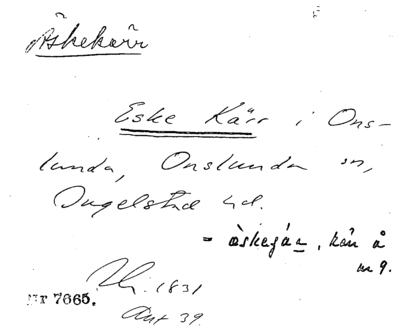 Äskekärr
Eske Kärr i Ons-
lunda, Onslunda sn,
Ingelstad hd.
= àskeɟáɹ, kärr å
m 9.
1831
Nr 7665.
Ant 39.